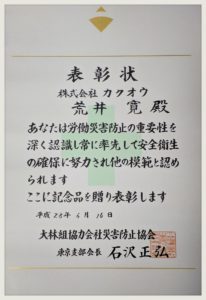 表彰状
株式会社カタオウ
荒井 寛 殿
あなたは労働災害防止の重要性を
深く認識し常に率先して安全衛生
の確保に努力され他の模範と認め
られます
ここに記念品を贈り表彰します
平成28年6月16日
大林組協力会社災害防止協会
東京支部会長 石沢正弘